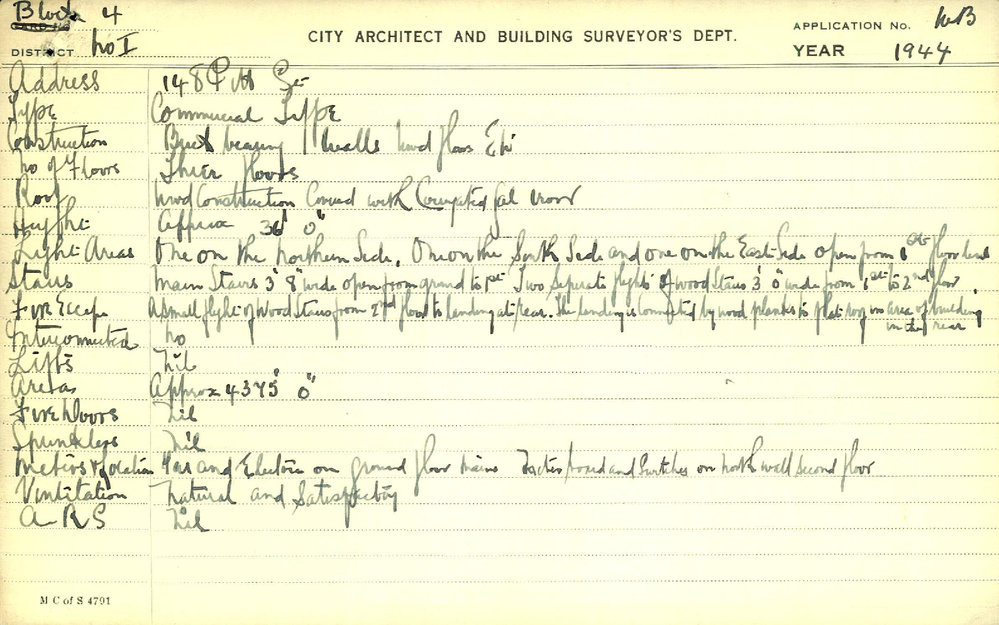 Block 4
CARD No.
DISTRICT No I
CITY ARCHITECT AND BUILDING SURVEYOR'S DEPT.
APPLICATION No. WB
YEAR 1944
Address 148 Pitt St
Type Commercial Type
Construction Brick bearing walls wood floors Etc
No of Floors Three floors
Roof Wood Construction Covered with Corrugated Gal iron
Height Approx 36' 0"
Light Areas One on the Northern Side. One on the South Side and one on the East Side open from 1st floor level
Stairs Main Stairs 3' 8" wide open from ground to 1st. Two Seperate flights of wood Stairs 3' 0" wide from 1st to 2nd floor.
Fire Escape A small flight of Wood Stairs from 2nd floor to landing at rear. The landing is connected by wood planks to flat roof in area of building
in the rear
Interconnected No
Lifts Nil
Areas Approx 4375' 0"
Fire Doors Nil
Sprinklers Nil
Meters & location Gas and Electric on ground floor mains board and Switches on north wall second floor
Ventilation Natural and Satisfactory
A-RS Nil
M C of S 4791